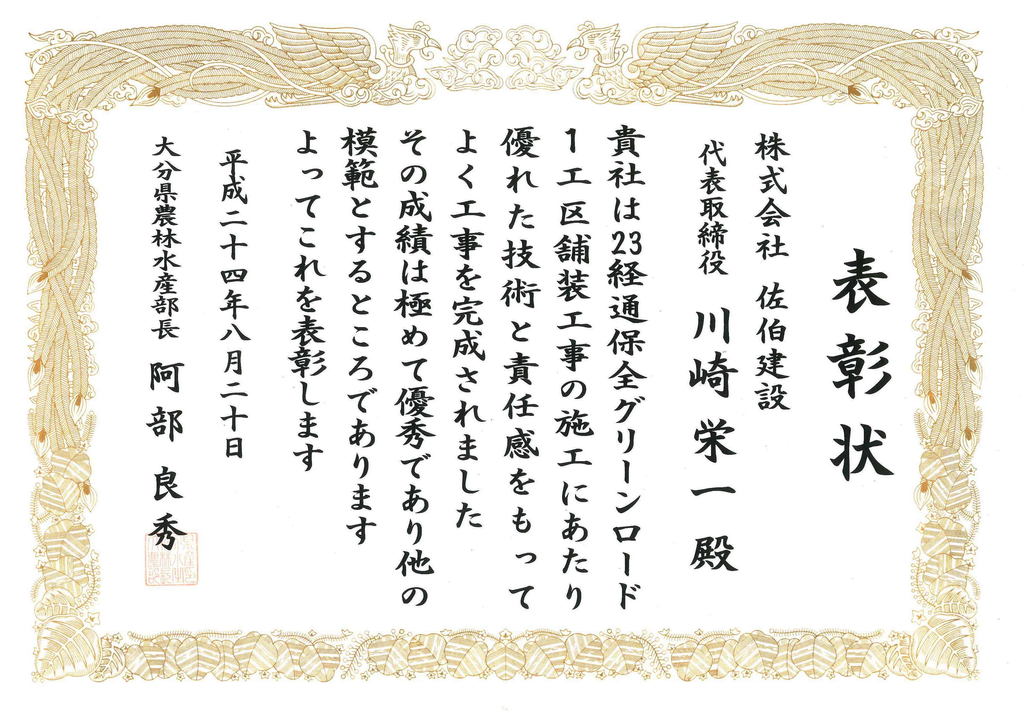 表彰状
株式会社 佐伯建設
代表取締役 川崎 栄一 殿
貴社は23経通保全グリーンロード
1工区舗装工事の施工にあたり
優れた技術と責任感をもって
よく工事を完成されました
その成績は極めて優秀であり他の
模範とするところであります
よってこれを表彰します
平成二十四年八月二十日
大分県農林水産部長 阿部 良秀